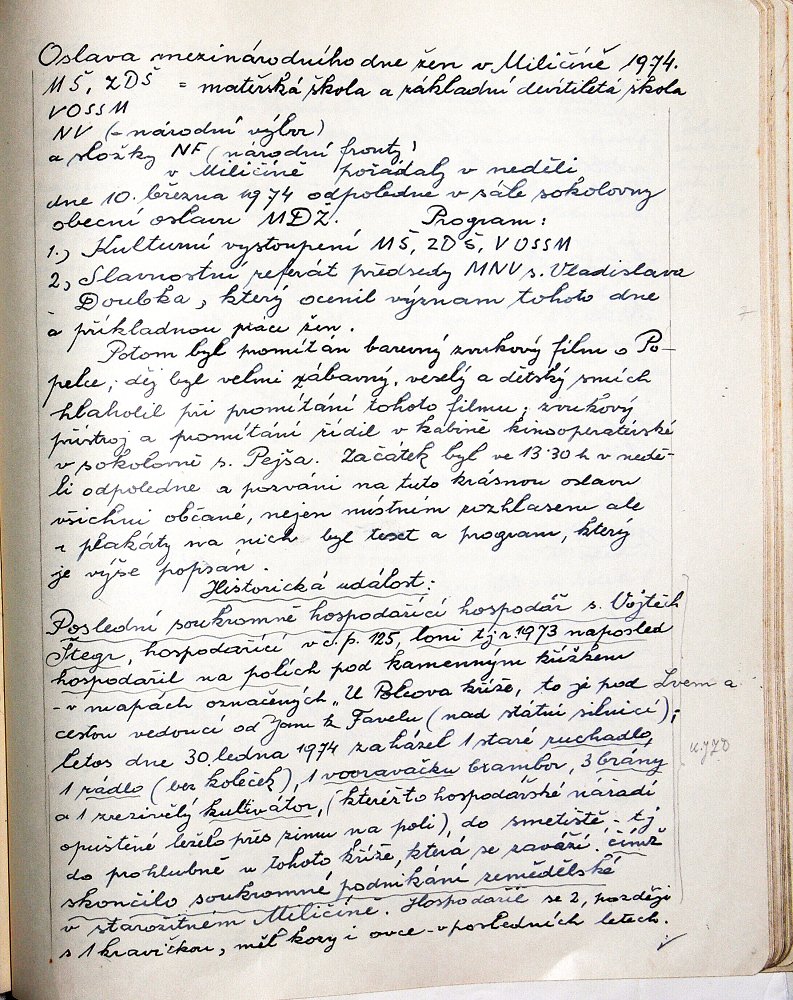 Oslava mezinárodního dne žen v Miličíně 1974.
MŠ, ZDŠ = mateřská škola a základní devítiletá škola
VOSSM
NV (= národní výbor)
a složky NF (národní fronty)
v Miličíně pořádaly v neděli
dne 10. března 1974 odpoledne v sále sokolovny
obecní oslavu MDŽ. Program:
1., Kulturní vystoupení MŠ, ZDŠ, VOSSM
2, Slavnostní referát předsedy MNV s. Vladislava
Doubka, který ocenil význam tohoto dne
a příkladnou práce žen.
Potom byl promítán barevný zvukový film o Po-
pelce; děj byl velmi zábavný, veselý a dětský smích
hlaholil při promítání tohoto filmu; zvukový
přístroj a promítání řídil v kabině kinooperatérské
v sokolovně s. Pejša. Začátek byl ve 13.30 h v nedě-
li odpoledne a pozváni na tuto krásnou oslavu
všichni občané, nejen místním rozhlasem ale
i plakáty na nich byl text a program, který
je výše popsán.
Historická událost:
Poslední soukromně hospodařící hospodář s. Vojtěch
Štegr, hospodařící v č.p. 125, loni tj. r. 1973 naposled
hospodařil na polích pod kamenným křížkem
- v mapách označených „U Bolcova kříže, to je pod Lvem a
cestou vedoucí od Jam k Favelu (nad státní silnicí);
letos dne 30. ledna 1974 zaházel 1 staré ruchadlo,
1 rádlo (bez koleček), 1 vooravačku brambor, 3 brány
a 1 zrezivělý kultivátor, (kteréžto hospodářské nářadí
opuštěné leželo přes zimu na poli), do smetiště - tj
do prohlubně u tohoto kříže, která se zaváží. čímž
skončilo soukromné podnikání zemědělské
v starožitném Miličíně. Hospodařil se 2, později
s 1 kravičkou, měl kozy i ovce - v posledních letech.